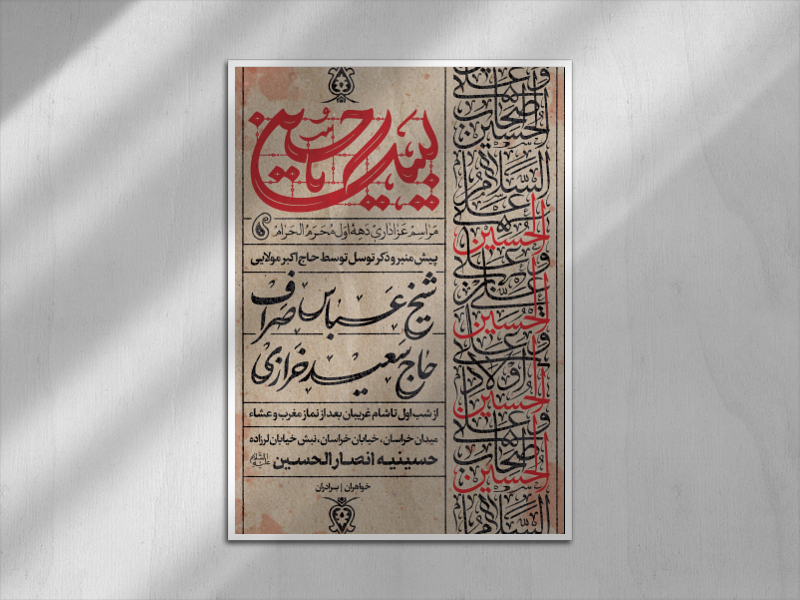 حسین
مَراسِم عَزاداریِ دَههٔ اوّل مُحَرّم الحَرام
پیش منبر و ذکر توسل توسط حاج اکبر مولایی
شیخ عباس صراف
حاج سعید خرازی
از شب اول تا شام غریبان بعد از نماز مغرب و عشاء
میدان خراسان، خیابان خراسان، نبش خیابان لرزاده
حسینیه انصار الحسین علیه‌السلام
خواهران | برادران
وعلی
اصحاب
الحسین
السلام
علی
الحسین
وعلی
علی بن
الحسین
وعلی
اولاد
الحسین
وعلی
اصحاب
الحسین
السلام